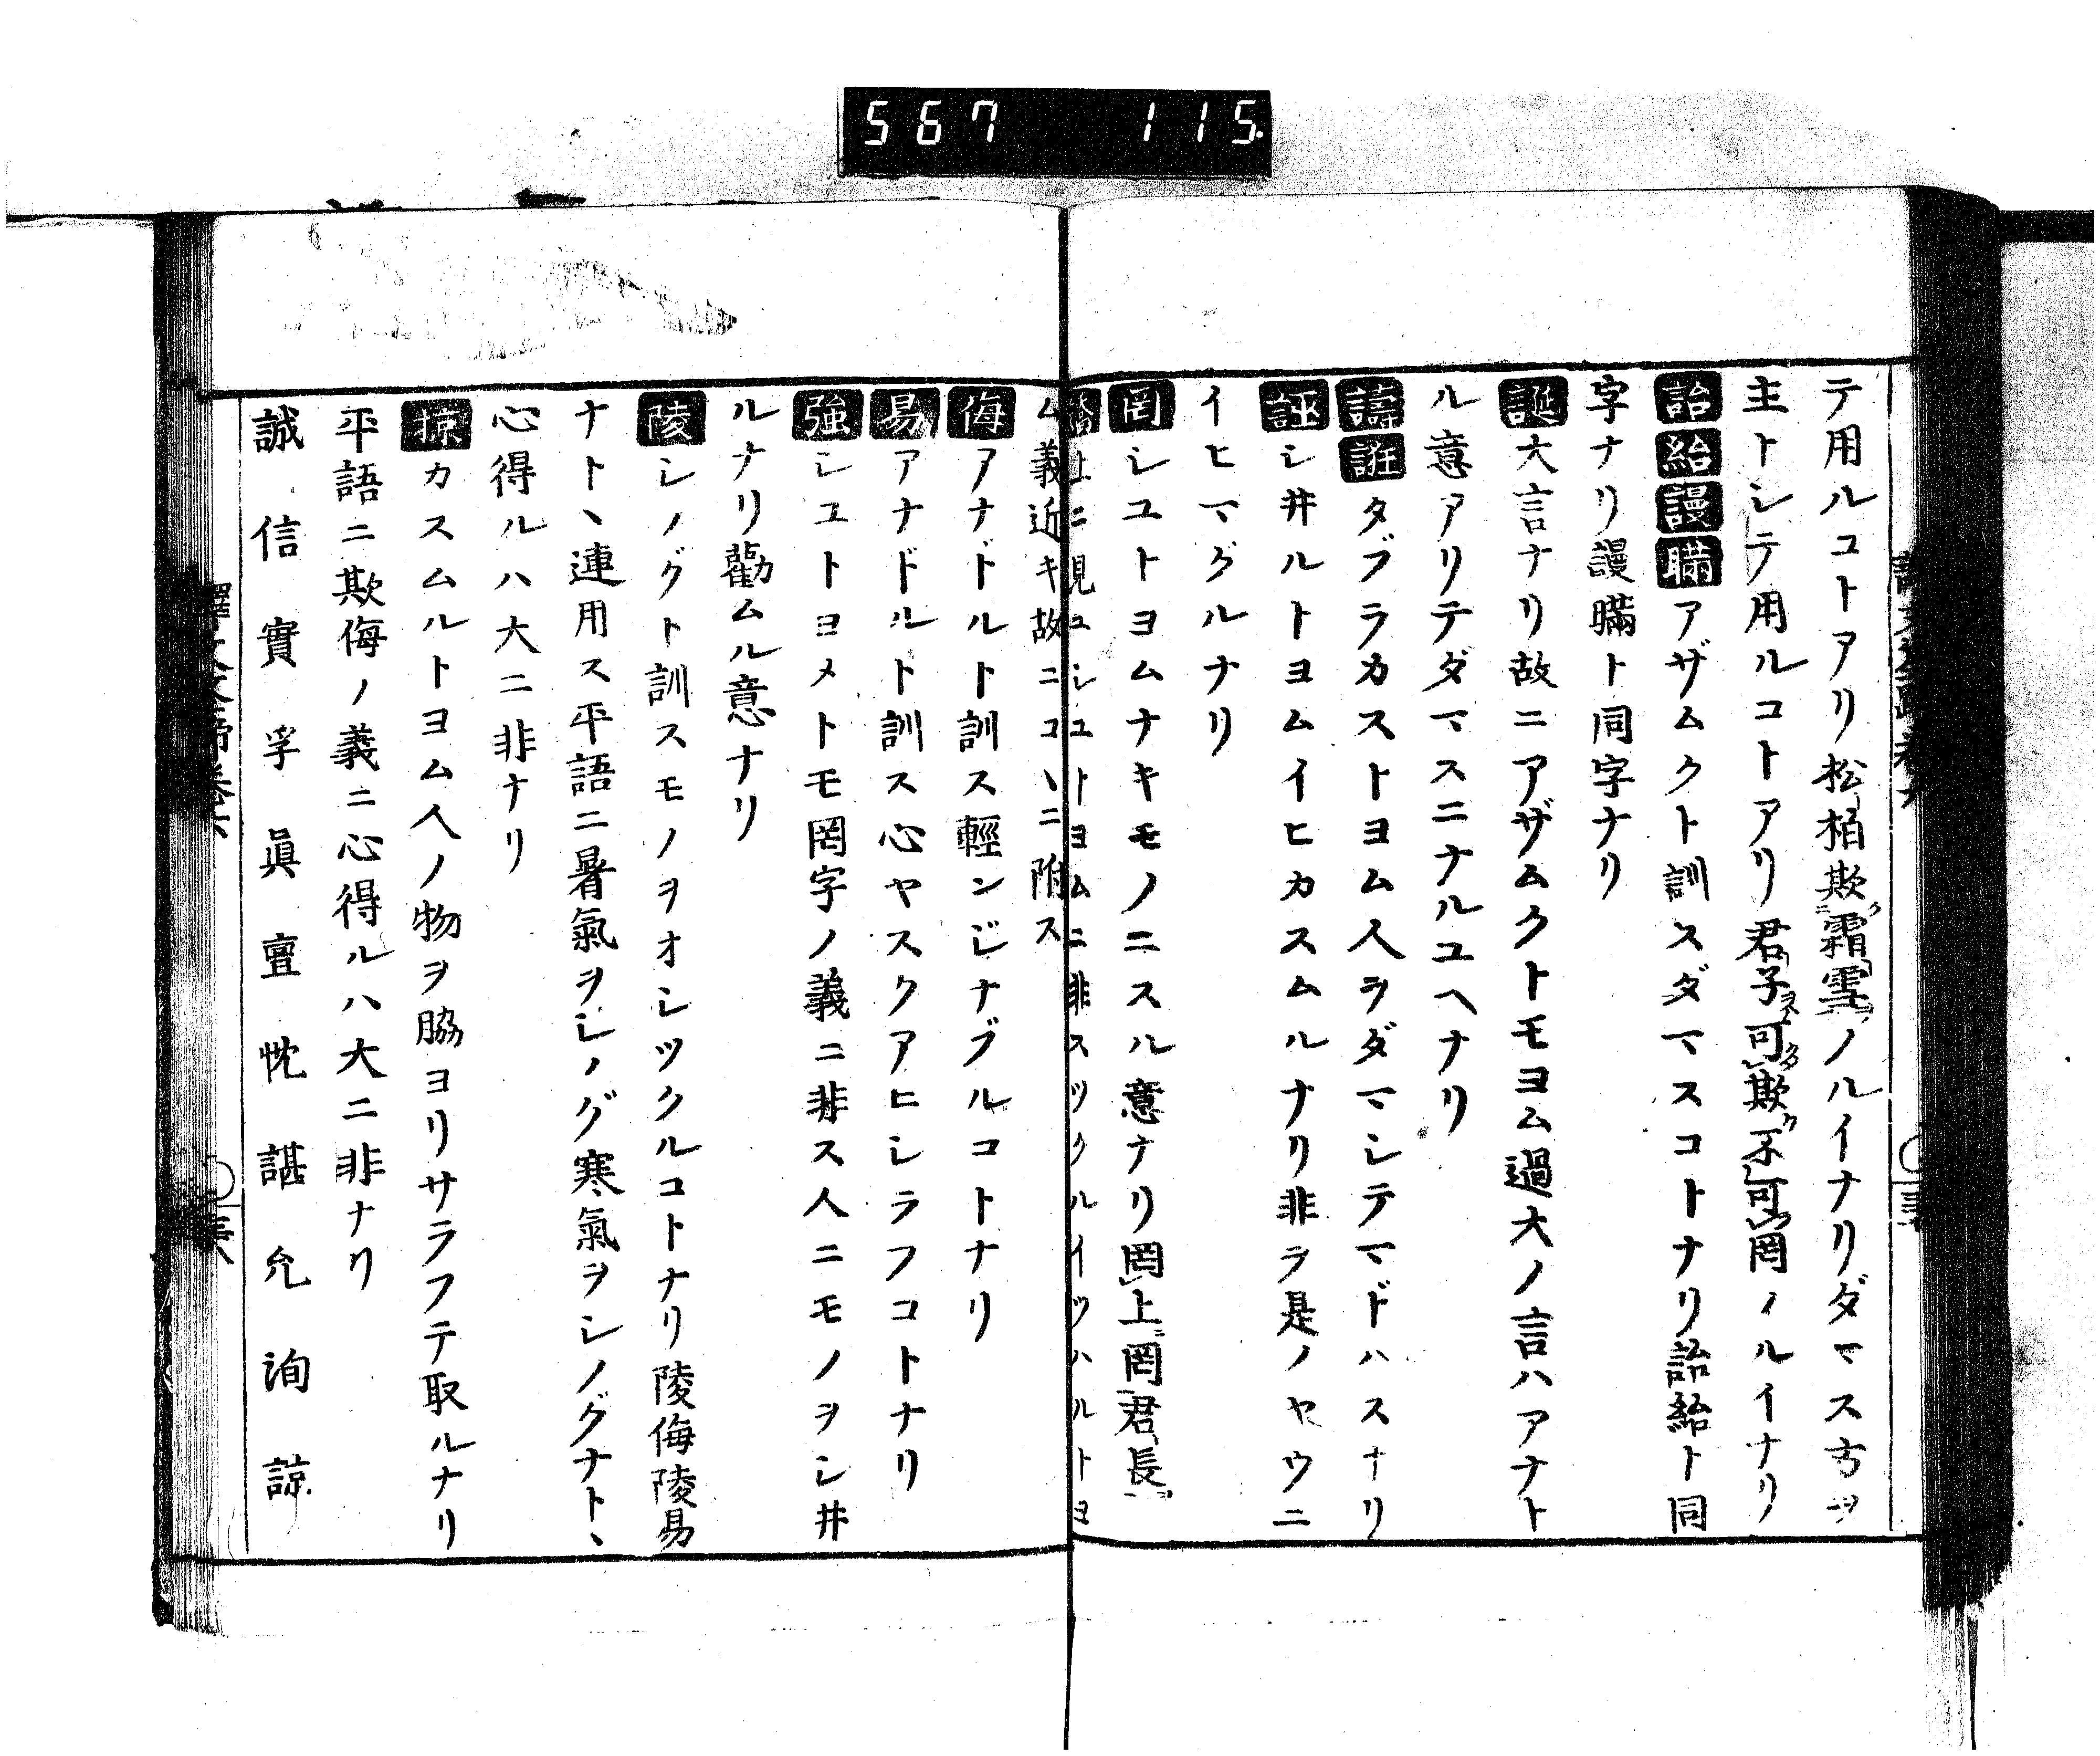 567 115.
テ用ルコトアリ松柏欺霜雪ノルイナリダマス方ヲ
主トシテ用ルコトアリ君子可欺不可罔ノルイナリ
詒紿謾瞞アザムクト訓スダマスコトナリ詒紿ト同
字ナリ謾瞞ト同字ナリ
誕大言ナリ故ニアザムクトモヨム過大ノ言ハアナト
ル意アリテダマスニナルユヘナリ
譸誑タブラカストヨム人ヲダマシテマドハスナリ
誣シ井ルトヨムイヒカスムルナリ非ヲ是ノヤウニ
イヒマグルナリ
罔シユトヨムナキモノニスル意ナリ罔上罔君長
上ニ見ユシユトヨムニ非スツクルイツハルトヨ
ム義近キ故ニコヽニ附ス
侮アナドルト訓ス輕ンジナブルコトナリ
易アナドルト訓ス心ヤスクアヒシラフコトナリ
強シユトヨメトモ罔字ノ義ニ非ス人ニモノヲシ井
ルナリ勸ムル意ナリ
陵シノグト訓スモノヲオシツクルコトナリ陵侮陵易
ナトヽ連用ス平語ニ暑氣ヲシノグ寒氣ヲシノグナトヽ
心得ルハ大ニ非ナリ
掠カスムルトヨム人ノ物ヲ脇ヨリサラフテ取ルナリ
平語ニ欺侮ノ義ニ心得ルハ大ニ非ナリ
誠信實孚眞亶忱諶允洵諒